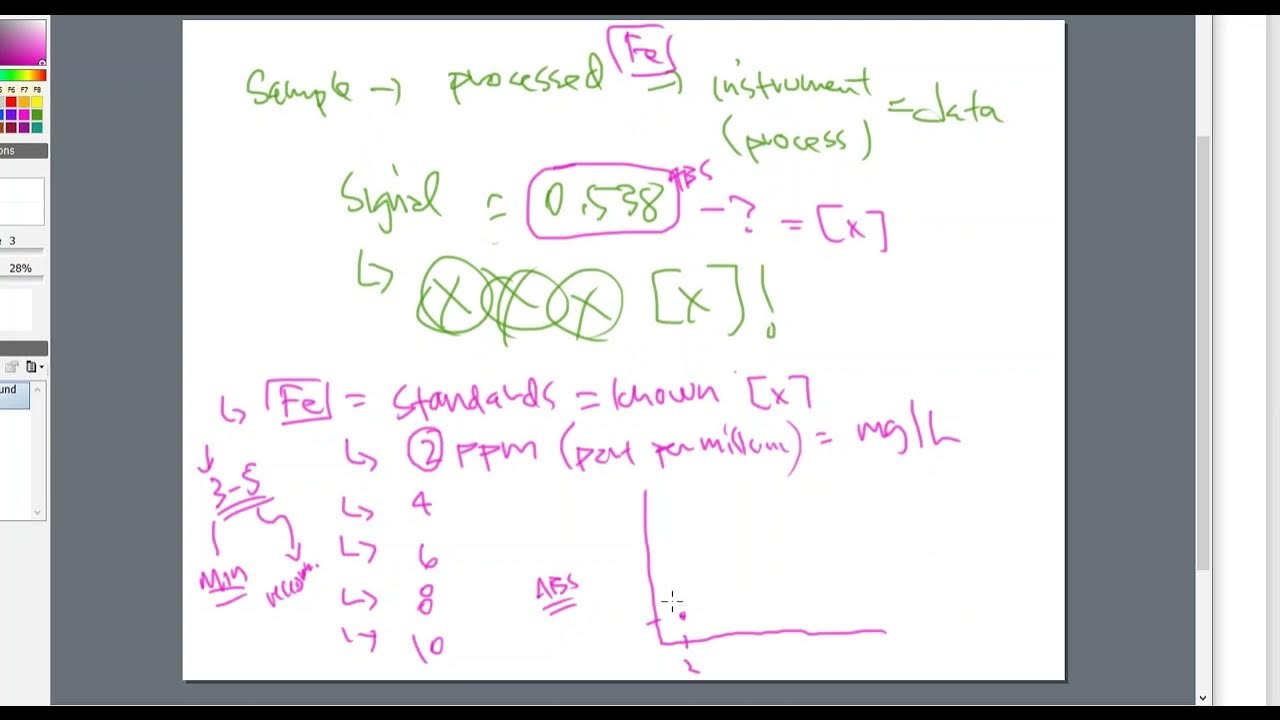 Fe
Sample → processed → instrument = data
(process)
F6 F7 F8
ons
Signal = 0.538 ABS - ? = [x]
3
28%
↳ X X X [x]!
und
↳ Fe = standards = known [x]
↳ 2 ppm (part per million) = mg/L
3-5
↳ 4
↳ 6
Min recom.
↳ 8
ABS
↳ 10
2